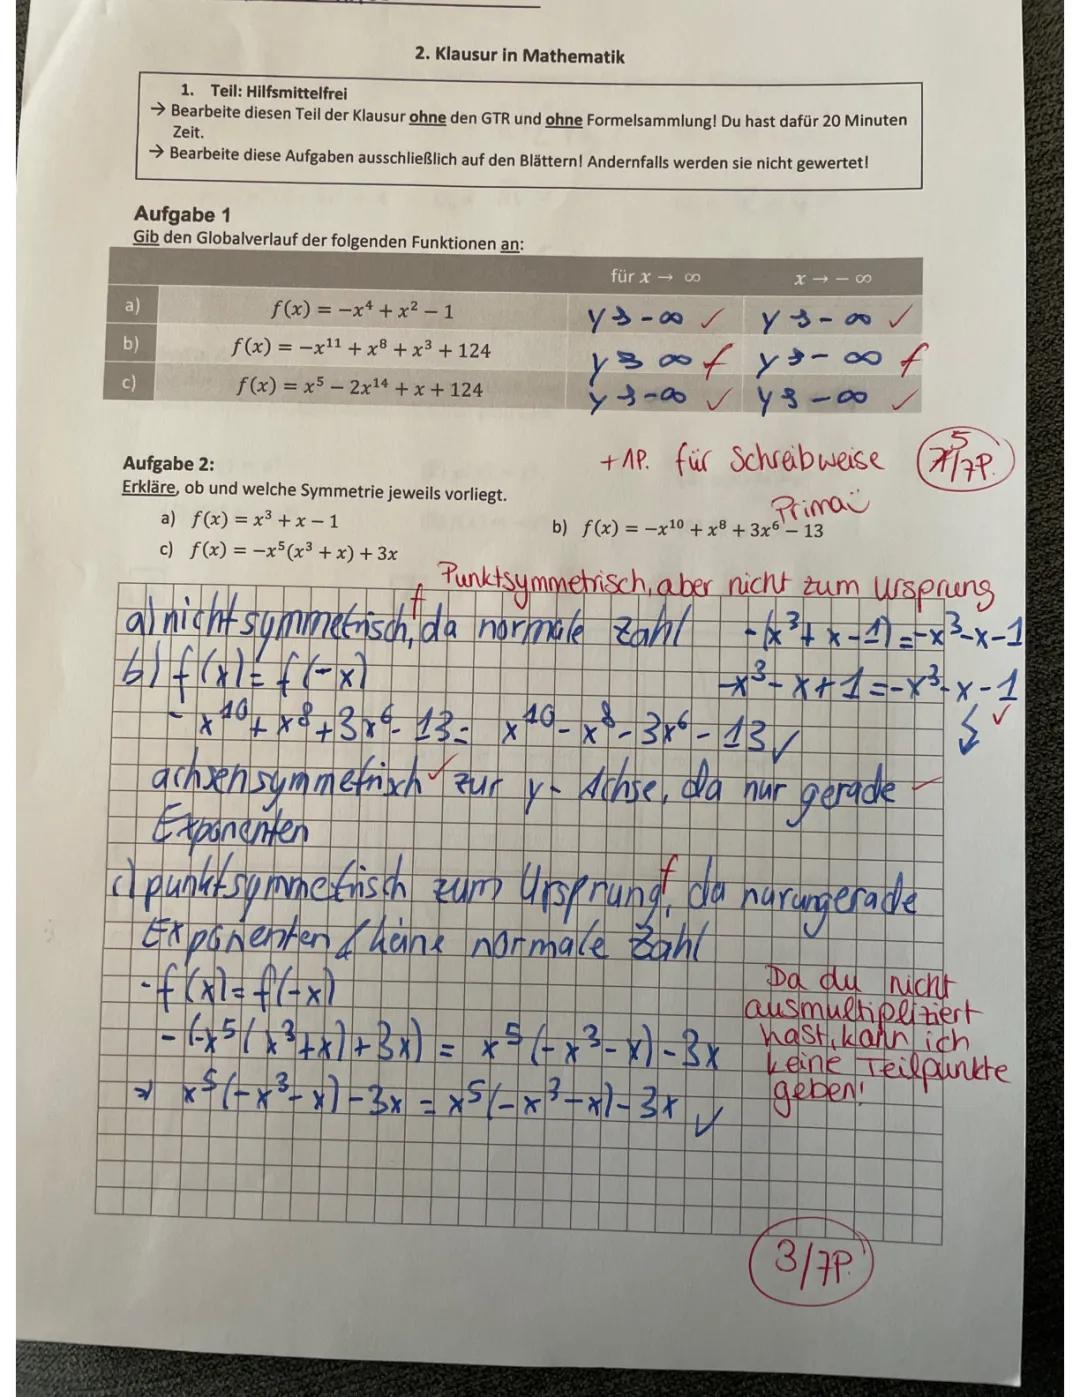 2. Klausur in Mathematik
1. Teil: Hilfsmittelfrei
→ Bearbeite diesen Teil der Klausur ohne den GTR und ohne Formelsammlung! Du hast dafür 20 Minuten
Zeit.
→ Bearbeite diese Aufgaben ausschließlich auf den Blättern! Andernfalls werden sie nicht gewertet!
Aufgabe 1
Gib den Globalverlauf der folgenden Funktionen an:
für x → ∞ x → − ∞
a) f(x) = −x⁴ + x² − 1 y → -∞ ✓ y → -∞ ✓
b) f(x) = −x¹¹ + x⁸ + x³ + 124 y → ∞ f y → -∞ f
c) f(x) = x⁵ − 2x¹⁴ + x + 124 y → -∞ ✓ y → -∞ ✓
+1P. für Schreibweise 5/7P.
Prima
Aufgabe 2:
Erkläre, ob und welche Symmetrie jeweils vorliegt.
a) f(x) = x³ + x − 1 b) f(x) = −x¹⁰ + x⁸ + 3x⁶ − 13
c) f(x) = −x⁵(x³ + x) + 3x
Punktsymmetrisch, aber nicht zum Ursprung
f
a) nicht symmetrisch, da normale Zahl -(x³+x-1)=-x³-x-1
b) f(x)=f(-x) -x³-x+1=-x³-x-1
-x¹⁰+x⁸+3x⁶-13= x¹⁰-x⁸-3x⁶-13 ✓ ↯ ✓
achsensymmetrisch ✓ zur y-Achse, da nur gerade
Exponenten
c) punktsymmetrisch zum Ursprung, f da nur ungerade
Exponenten / keine normale Zahl
-f(x)=f(-x)
-(-x⁵(x³+x)+3x) = x⁵(-x³-x)-3x
⇒ x⁵(-x³-x)-3x = x⁵(-x³-x)-3x ✓
Da du nicht
ausmultipliziert
hast, kann ich
keine Teilpunkte
geben!
3/7P.